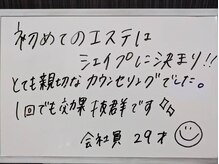 初めてのエステは
シェイプに決まり!!
とても親切なカウンセリングでした。
1回でも効果抜群です♪♪
会社員 29才